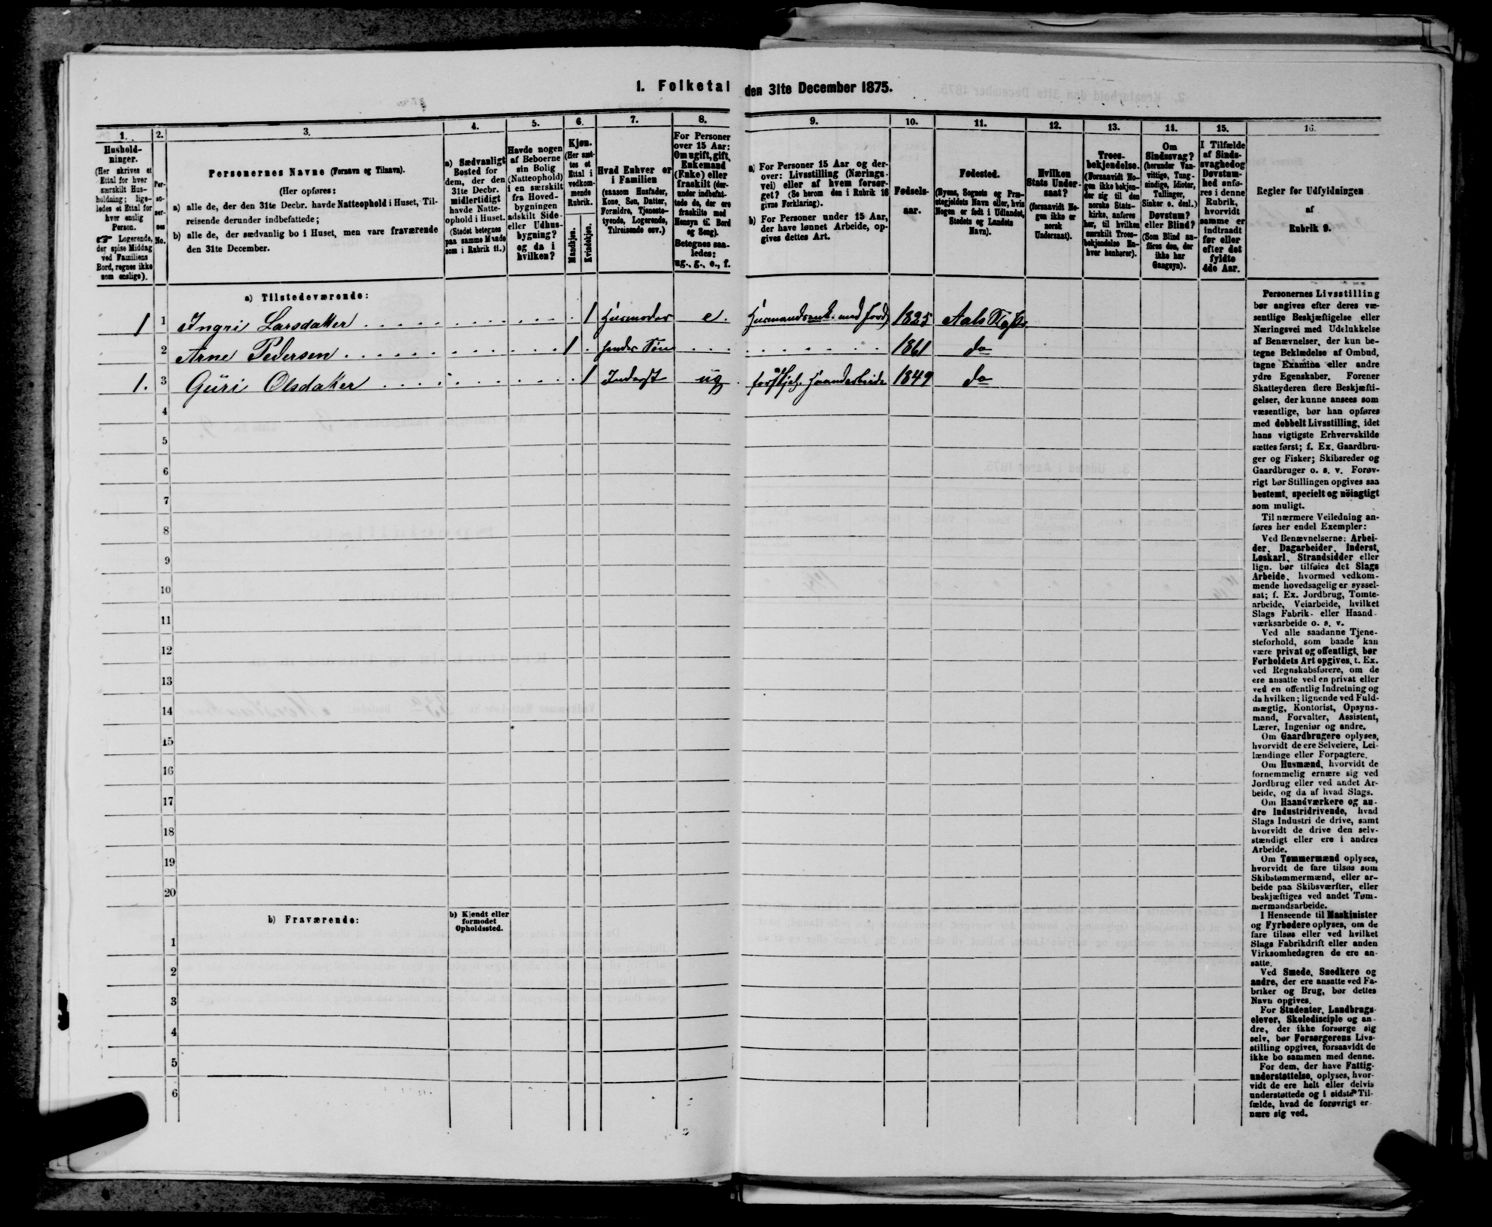 1. Folketal den 31te December 1875.
1. 2. 3. 4. 5. 6. 7. 8. 9. 10. 11. 12. 13. 14. 15. 16.
Hushold-
ninger.
(Her skrives et
Ettal for hver
særskilt Hus-
holdning; lige-
ledes et Ettal for
hver enslig
Person.
☞ Logerende,
der spise Middag
ved Familiens
Bord, regnes ikke
som enslige).
Per-
ser-
nes
No.
Personernes Navne (Fornavn og Tilnavn).
(Her opføres:
a) alle de, der den 31te Decbr. havde Natteophold i Huset, Til-
reisende derunder indbefattede;
b) alle de, der sædvanlig bo i Huset, men vare fraværende
den 31te December.
a) Sædvanligt
Bosted for
dem, der den
31te Decbr.
midlertidigt
havde Natte-
ophold i Huset.
(Stedet betegnes
paa samme Maade
som i Rubrik 11.)
Havde nogen
af Beboerne
sin Bolig
(Natteophold)
i en særskilt
fra Hoved-
bygningen
adskilt Side-
eller Udhus-
bygning?
og da i
hvilken?
Kjøn.
(Her sæt-
tes et
Ettal i
vedkom-
mende
Rubrik.
Mandkjøn.
Kvindekjøn.
Hvad Enhver er
i Familien
(saasom Husfader,
Kone, Søn, Datter,
Forældre, Tjeneste-
tyende, Logerende,
Tilreisende osv.)
For Personer
over 15 Aar:
Om ugift, gift,
Enkemand
(Enke) eller
fraskilt (der-
under indbefat-
tede de, der ere
fraskilte med
Hensyn til Bord
og Seng).
Betegnes saa-
ledes:
ug., g., e., f.
a) For Personer 15 Aar og der-
over: Livsstilling (Nærings-
vei) eller af hvem forsør-
get? (Se herom den i Rubrik 16
givne Forklaring).
b) For Personer under 15 Aar,
der have lønnet Arbeide, op-
gives dettes Art.
Fødsels-
aar.
Fødested.
(Byens, Sognets og Præ-
stegjeldets Navn eller, hvis
Nogen er født i Udlandet,
Stedets og Landets
Navn).
Hvilken
Stats Under-
saat?
(forsaavidt No-
gen ikke er
norsk
Undersaat).
Troes-
bekjendelse.
(Forsaavidt No-
gen ikke bekjen-
der sig til den
norske Stats-
kirke, anføres
her, til hvilken
særskilt Troes-
bekjendelse En-
hver henhører).
Om
Sindssvag?
(herunder Van-
vittige, Tung-
sindige, Idioter,
Tullinger,
Sinker o. desl.)
Døvstum?
eller Blind?
(Som Blind an-
føres den, der
ikke har
Gangsyn).
I Tilfælde
af Sinds-
svaghed og
Døvstum-
hed anfø-
res i denne
Rubrik,
hvorvidt
samme er
indtraadt
før eller
efter det
fyldte
4de Aar.
Regler for Udfyldningen
af
Rubrik 9.
a) Tilstedeværende:
1 1 Ingri Larsdatter 1 Husmoder e. Husmandsenk. med Jord 1825 Aals Prgjld
2 Arne Pedersen 1 hendes Søn 1861 do
1. 3 Guri Olsdatter 1 Inderst ug forskjel. Haandarbeide 1849 do
4
5
6
7
8
9
10
11
12
13
14
15
16
17
18
19
20
b) Fraværende:
b) Kjendt eller
formodet
Opholdssted.
1
2
3
4
5
6
Personernes Livsstilling
bør angives efter deres væ-
sentlige Beskjæftigelse eller
Næringsvei med Udelukkelse
af Benævnelser, der kun be-
tegne Beklædelse af Ombud,
tagne Examina eller andre
ydre Egenskaber. Forener
Skatteyderen flere Beskjæfti-
gelser, der kunne ansees som
væsentlige, bør han opføres
med dobbelt Livsstilling, idet
hans vigtigste Erhvervskilde
sættes først; f. Ex. Gaardbru-
ger og Fisker; Skibsreder og
Gaardbruger o. s. v. Forøv-
rigt bør Stillingen opgives saa
bestemt, specielt og nöiagtigt
som muligt.
Til nærmere Veiledning an-
føres her endel Exempler:
Ved Benævnelserne: Arbei-
der, Dagarbeider, Inderst,
Løskarl, Strandsidder eller
lign. bør tilføies det Slags
Arbeide, hvormed vedkom-
mende hovedsagelig er syssel-
sat; f. Ex. Jordbrug, Tomte-
arbeide, Veiarbeide, hvilket
Slags Fabrik- eller Haand-
værksarbeide o. s. v.
Ved alle saadanne Tjene-
steforhold, som baade kan
være privat og offentligt, bør
Forholdets Art opgives, t. Ex.
ved Regnskabsførere, om de
ere ansatte ved en privat eller
ved en offentlig Indretning og
da hvilken; lignende ved Fuld-
mægtig, Kontorist, Opsyns-
mand, Forvalter, Assistent,
Lærer, Ingeniør og andre.
Om Gaardbrugere oplyses,
hvorvidt de ere Selveiere, Lei-
lændinge eller Forpagtere.
Om Husmænd, hvorvidt de
fornemmelig ernære sig ved
Jordbrug eller ved andet Ar-
beide, og da af hvad Slags.
Om Haandværkere og an-
dre Industridrivende, hvad
Slags Industri de drive, samt
hvorvidt de drive den selv-
stændigt eller ere i andres
Arbeide.
Om Tømmermænd oplyses,
hvorvidt de fare tilsøs som
Skibstømmermænd, eller ar-
beide paa Skibsværfter, eller
beskjæftiges ved andet Tøm-
mermandsarbeide.
I Henseende til Maskinister
og Fyrbødere oplyses, om de
fare tilsøs eller ved hvilket
Slags Fabrikdrift eller anden
Virksomhedsgren de ere an-
satte.
Ved Smede, Snedkere og
andre, der ere ansatte ved Fa-
briker og Brug, bør dettes
Navn opgives.
For Studenter, Landbrugs-
elever, Skoledisciple og an-
dre, der ikke forsørge sig
selv, bør Forsørgerens Livs-
stilling opgives, forsaavidt de
ikke bo sammen med denne.
For dem, der have Fattig-
understøttelse, oplyses, hvor-
vidt de ere helt eller delvis
understøttede og i sidste Til-
fælde, hvad de forøvrigt er-
nære sig ved.